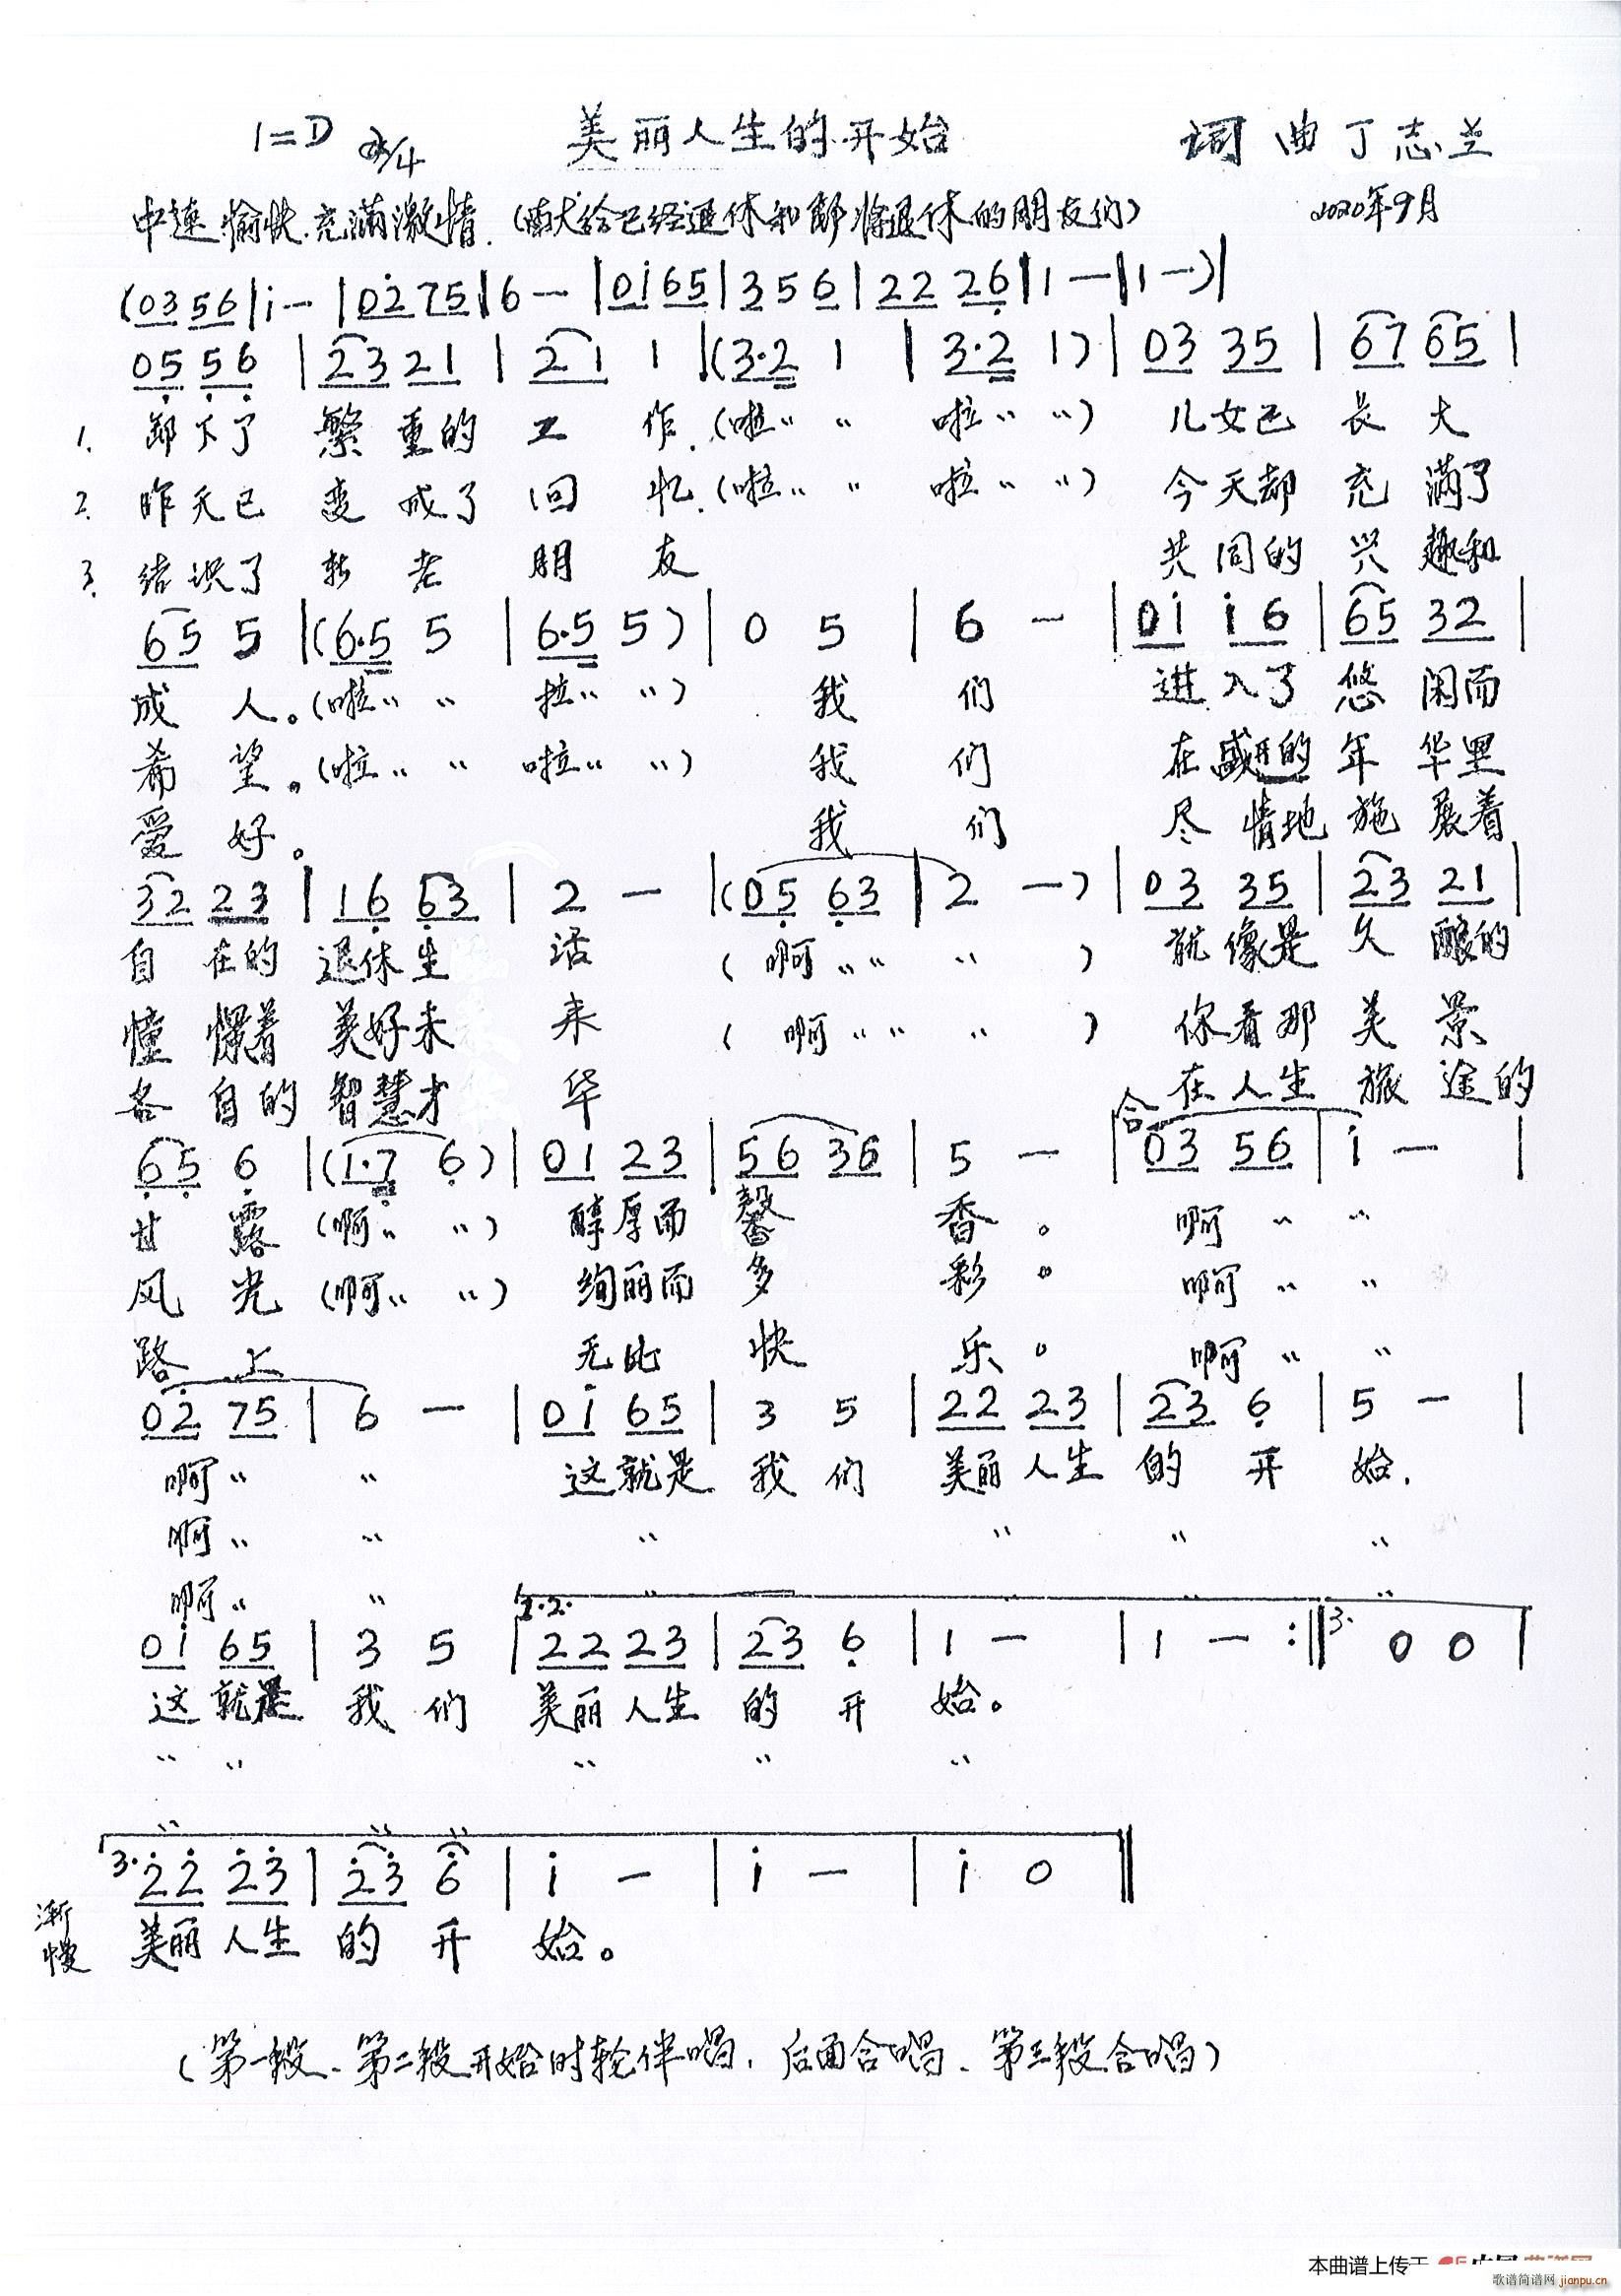 1=D 2/4 美丽人生的开始 词曲 丁志兰
中速 愉快.充满激情.(献给已经退休和即将退休的朋友们) 2020年9月
(03 56|i̇ —|02̇ 75|6 —|0i̇ 65|3 5 6|22 26̣|1 —|1 —)|
05̣ 5̣6̣|23 21|2 1 1|(3·2 1|3·2 1)|03 35|67 65|
1. 卸下了 繁重的 工 作.(啦〃 〃 啦〃 〃) 儿女已 长 大
2. 昨天已 变成了 回 忆.(啦〃 〃 啦〃 〃) 今天却 充 满了
3. 结识了 新老 朋 友 共同的 兴 趣和
65 5|(6·5 5|6·5 5)|0 5|6 —|0i̇ i̇6|65 32|
成 人。(啦〃 〃 拉〃 〃) 我 们 进入了 悠 闲而
希 望。(啦〃 〃 啦〃 〃) 我 们 在盛开的 年 华里
爱 好。 我 们 尽情地 施 展着
32 23|16̣ 6̣3|2 —|(05̣ 6̣3|2 —)|03 35|23 21|
自 在的 退休生 活 (啊〃〃 〃) 就像是 久 酿的
憧 憬着 美好未 来 (啊〃〃 〃) 你看那 美 景
各 自的 智慧才 华 在人生 旅 途的
6̣5̣ 6̣|(1·7̣ 6̣)|01 23|56 36|5 —|合 03 56|i̇ —|
甘 露 (啊〃 〃) 醇厚而 馨 香。 啊〃 〃
风 光 (啊〃 〃) 绚丽而 多 彩。 啊〃 〃
路 上 无比 快 乐。 啊〃 〃
02̇ 75|6 —|0i̇ 65|3 5|22 23|23 6̣|5 —|
啊〃 〃 这就是 我们 美丽人生 的 开 始.
啊〃 〃 〃 〃 〃 〃
啊〃 〃 〃 〃 〃
0i̇ 65|3 5|1.2. 22 23|23 6̣|1 —|1 — :‖3. 0 0|
这就是 我们 美丽人生 的 开 始。
〃 〃 〃 〃 〃
〃 〃 〃
3. 2̇2̇ 2̇3̇|2̇3̇ 6̇|i̇ —|i̇ —|i̇ 0‖
渐慢 美丽人生 的 开 始。
(第一段、第二段开始时轮伴唱,后面合唱、第三段合唱)
本曲谱上传于
歌谱简谱网 jianpu.cn